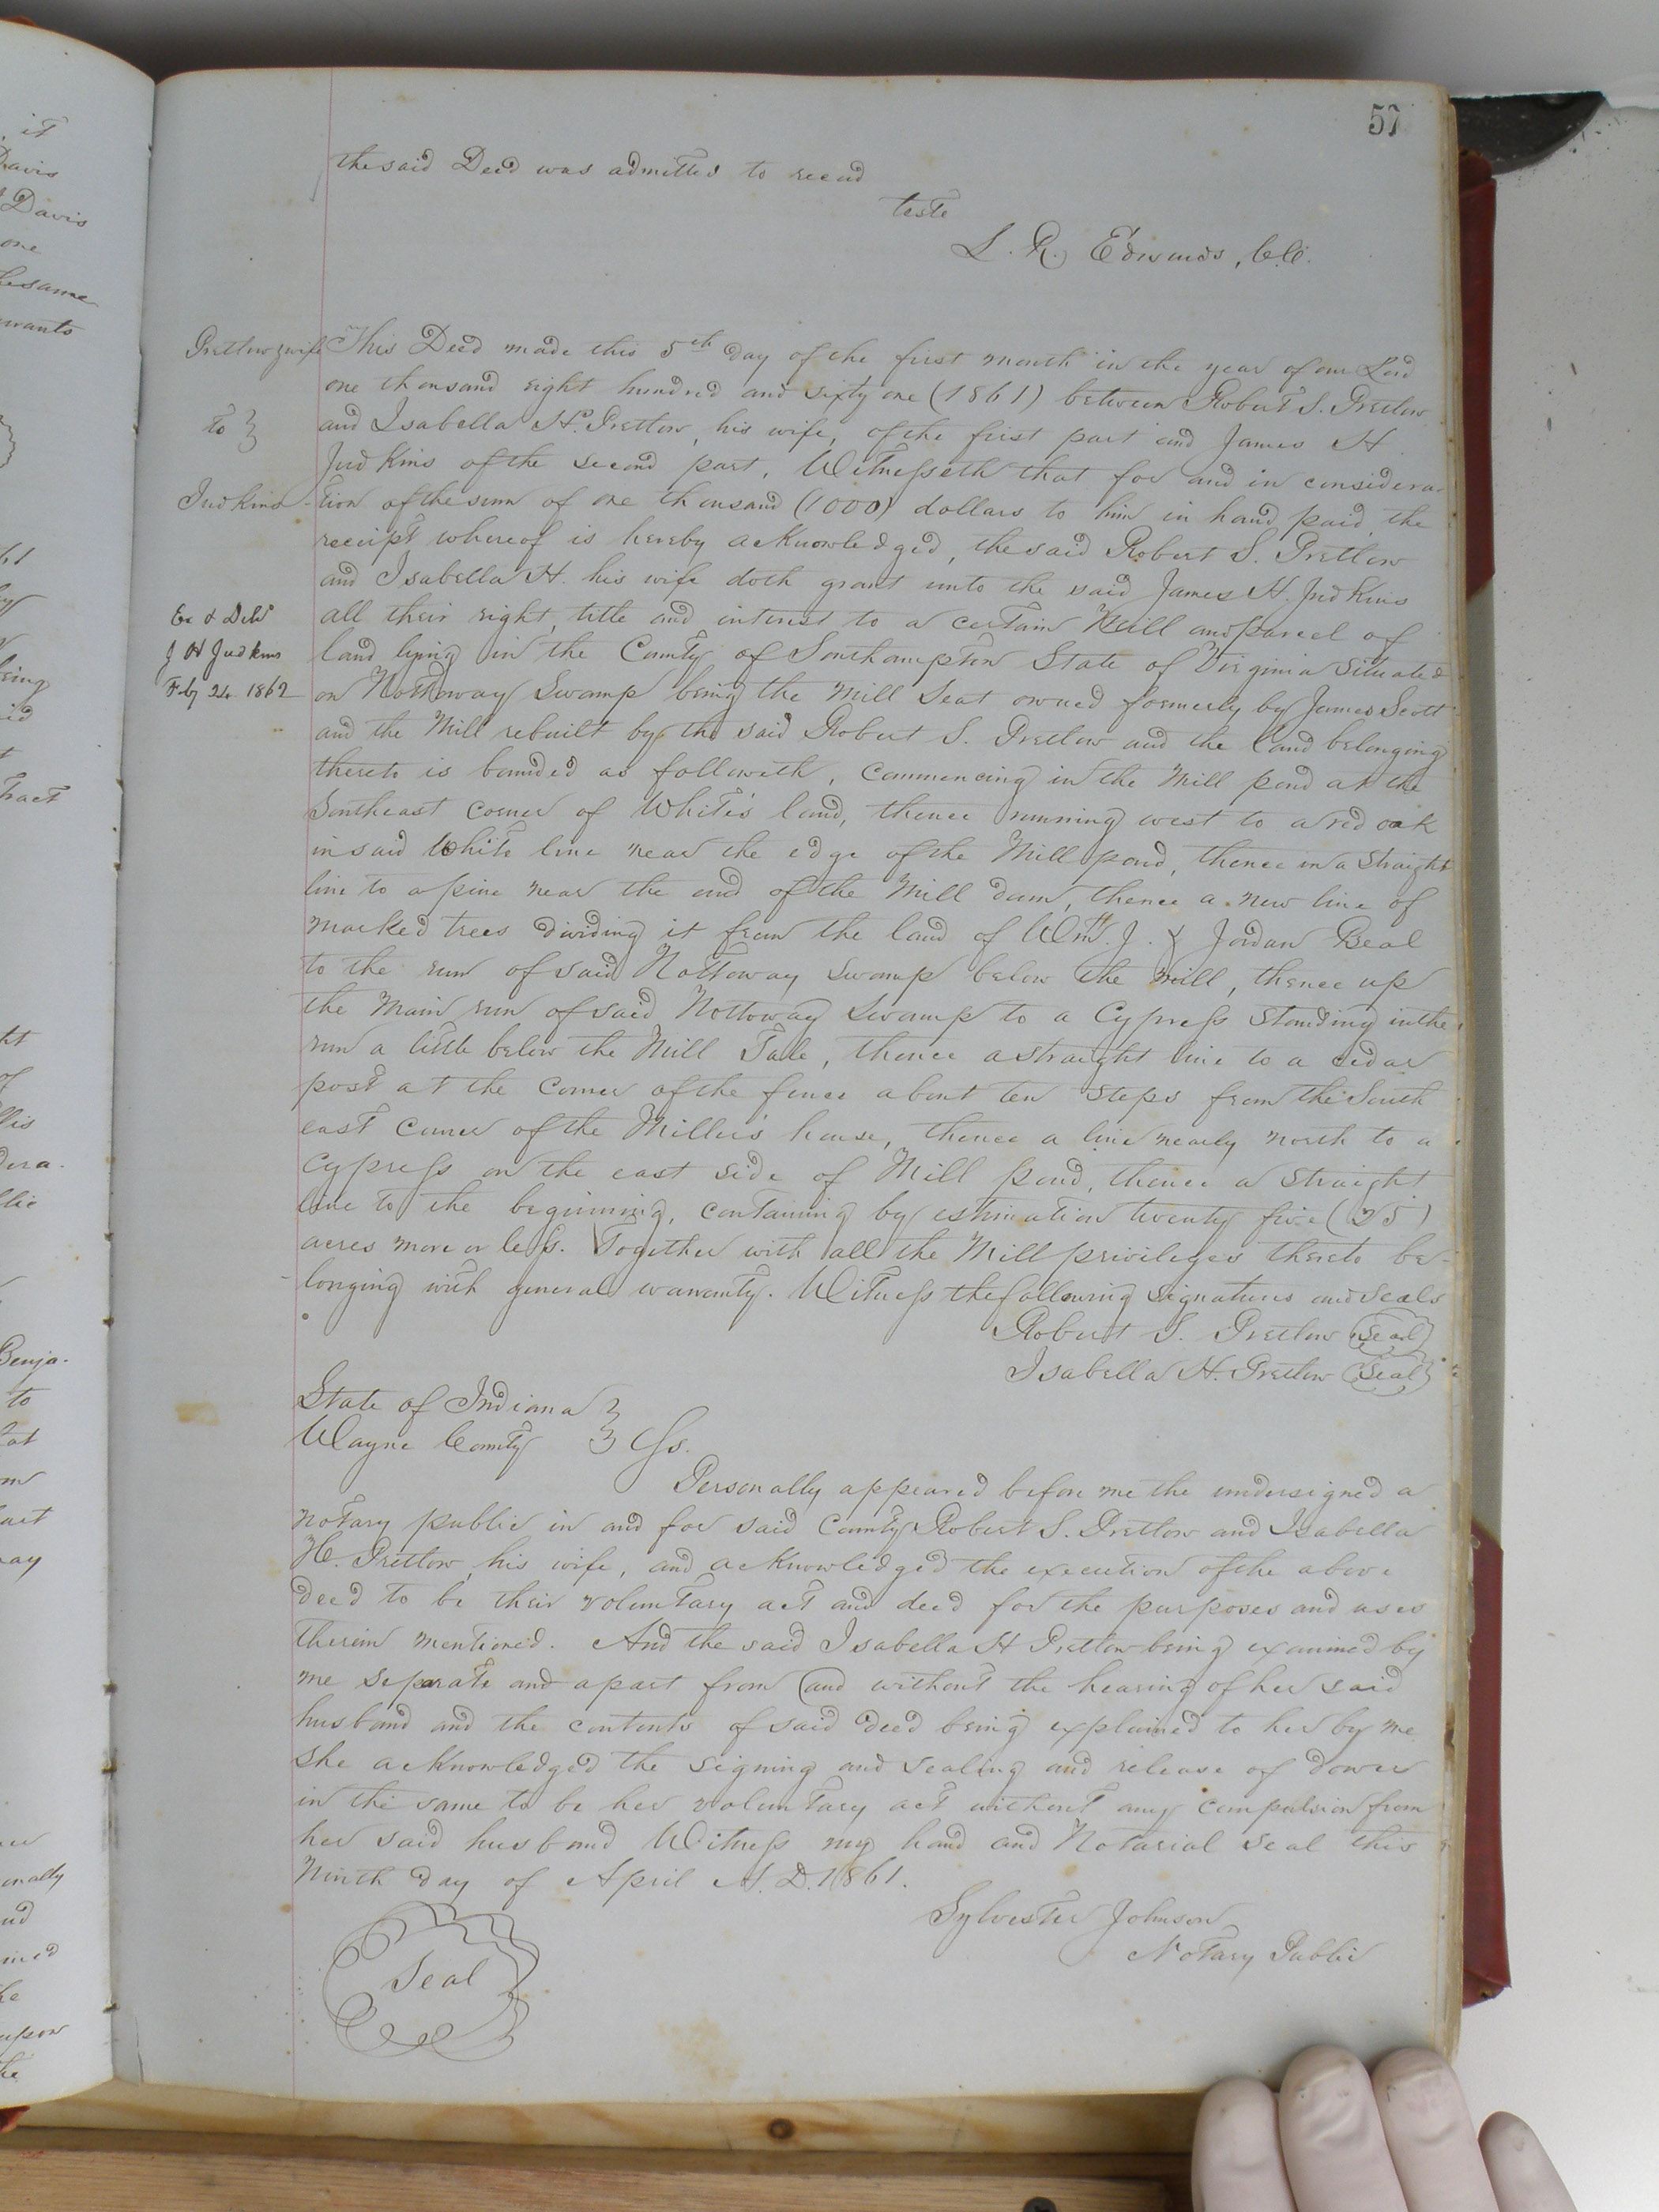 57
the said Deed was admitted to record
teste
L. R. Edwards, C.C.
Pretlow & wife
to
Judkins
Ex & Deld
J H Judkins
Feby 24. 1862
This Deed made this 5th day of the first month in the year of our Lord
one thousand eight hundred and sixty one (1861) between Robert S. Pretlow
and Isabella H. Pretlow, his wife, of the first part and James H
Judkins of the second part, Witnesseth that for and in considera-
tion of the sum of one thousand (1000) dollars to him in hand paid, the
receipt whereof is hereby acknowledged, the said Robert S. Pretlow
and Isabella H. his wife doth grant unto the said James H. Judkins
all their right, title and interest to a certain Mill and parcel of
land lying in the County of Southampton State of Virginia situated
on Nottoway Swamp being the Mill Seat owned formerly by James Scott
and the Mill rebuilt by the said Robert S. Pretlow and the land belonging
thereto is bounded as followeth, commencing in the Mill pond at the
Southeast corner of White's land, thence running west to a red oak
in said White line near the edge of the Mill pond, thence in a straight
line to a pine near the end of the Mill dam, thence a new line of
marked trees dividing it from the land of Wm. J. & Jordan Beal
to the run of said Nottoway Swamp below the mill, thence up
the Main run of said Nottoway Swamp to a Cypress standing in the
run a little below the Mill Tale, thence a straight line to a cedar
post at the corner of the fence about ten steps from the South
east corner of the Miller's house, thence a line nearly north to a
Cypress on the east side of Mill pond, thence a straight
line to the beginning, containing by estimation twenty five (25)
acres more or less. Together with all the Mill privileges thereto be-
longing with general warranty. Witness the following signatures and seals
Robert S. Pretlow Seal
Isabella H. Pretlow Seal
State of Indiana
Wayne County Ss.
Personally appeared before me the undersigned a
notary public in and for said County Robert S. Pretlow and Isabella
H. Pretlow, his wife, and acknowledged the execution of the above
deed to be their voluntary act and deed for the purposes and uses
therein mentioned. And the said Isabella H Pretlow being examined by
me separate and apart from and without the hearing of her said
husband and the contents of said deed being explained to her by me
she acknowledged the signing and sealing and release of dower
in the same to be her voluntary act without any compulsion from
her said husband Witness my hand and Notarial seal this
Ninth day of April A.D. 1861.
Sylvester Johnson
Notary Public
Seal